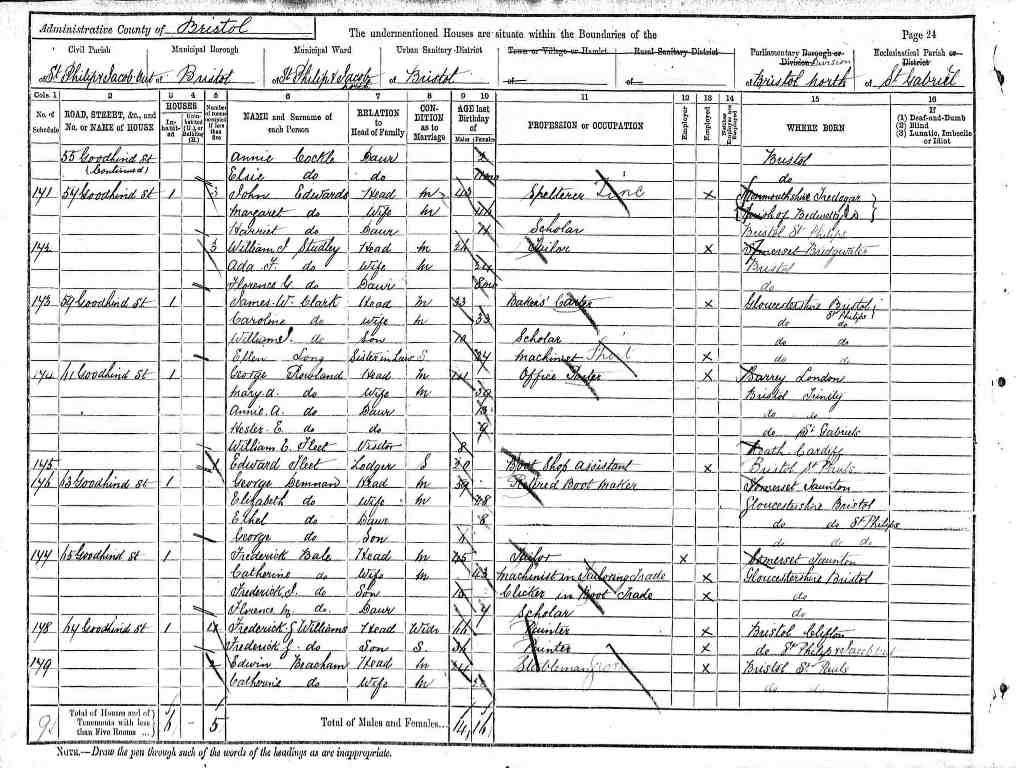 Administrative County of Bristol
The undermentioned Houses are situate within the Boundaries of the
Page 24
Civil Parish Municipal Borough Municipal Ward Urban Sanitary District Town or Village or Hamlet Rural Sanitary District Parliamentary Borough or Division Division Ecclesiastical Parish or District
of St Philip & Jacob Out of Bristol of St Philip & Jacob of Bristol of of of Bristol North of St Gabriel
Cols. 1 2 3 4 5 6 7 8 9 10 11 12 13 14 15 16
No. of Schedule
ROAD, STREET, &c., and No. or NAME of HOUSE
HOUSES
Inhabited
Uninhabited (U.), or Building (B.)
Number of rooms occupied if less than five
NAME and Surname of each Person
RELATION to Head of Family
CONDITION as to Marriage
AGE last Birthday of
Males Females
PROFESSION or OCCUPATION
Employer
Employed
Neither Employer nor Employed
WHERE BORN
If
(1) Deaf-and-Dumb
(2) Blind
(3) Lunatic, Imbecile or Idiot
55 Goodhind St Annie Cockle Daur Bristol
(Continued) Elsie do do do
171 57 Goodhind St 1 3 John Edwards Head M 43 Spelterer Zinc x Monmouthshire Tredegar
Margaret do Wife M Parish of Bedwelty
Harriet do Daur Scholar Bristol St Philips
172 3 William J Studley Head M Tailor x Somerset Bridgwater
Ada F. do Wife M 24 Bristol
Florence G. do Daur 8mo do
173 59 Goodhind St 1 James W. Clark Head M 33 Bakers' Carter x Gloucestershire Bristol St Philips
Caroline do Wife M 33 do do
William J. do Son 10 Scholar do do
Ellen Long Sister in Law S. 24 Machinist x do do
174 61 Goodhind St 1 George Rowland Head M 41 Office Porter x London
Mary A. do Wife M 39 Bristol Trinity
Annie. A. do Daur 13 do do
Hester. E. do do 9 do St Gabriels
William E. Fleet Visitor 8 Cardiff
175 Edward Fleet Lodger S 20 Boot Shop Assistant x Bristol St Pauls
176 63 Goodhind St 1 George Head M 39 Retired Boot Maker Somerset Taunton
Elizabeth do Wife M Gloucestershire Bristol
Ethel do Daur 8 do do St Philips
George do Son do do do
177 65 Goodhind St 1 Frederick Bale Head M 45 Tailor x Somerset Taunton
Catherine do Wife M 43 Machinist in Tailoring Trade x Gloucestershire Bristol
Frederick J. do Son Clicker in Boot Trade x do
Florence M. do. Daur Scholar do
178 67 Goodhind St 1 4 Frederick G Williams Head Widr 66 Painter x Bristol Clifton
Frederick G. do Son S. 36 Painter x do St Philip & Jacob Out
179 Edwin Beacham Head M Stableman x Bristol St Pauls
Catherine do Wife M do do
Total of Houses and of Tenements with less than Five Rooms ... 6 - 5 Total of Males and Females... 14 16
NOTE.—Draw the pen through such of the words of the headings as are inappropriate.